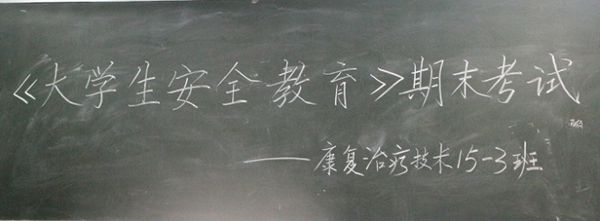 《大学生安全教育》期末考试
——康复治疗技术15-3班